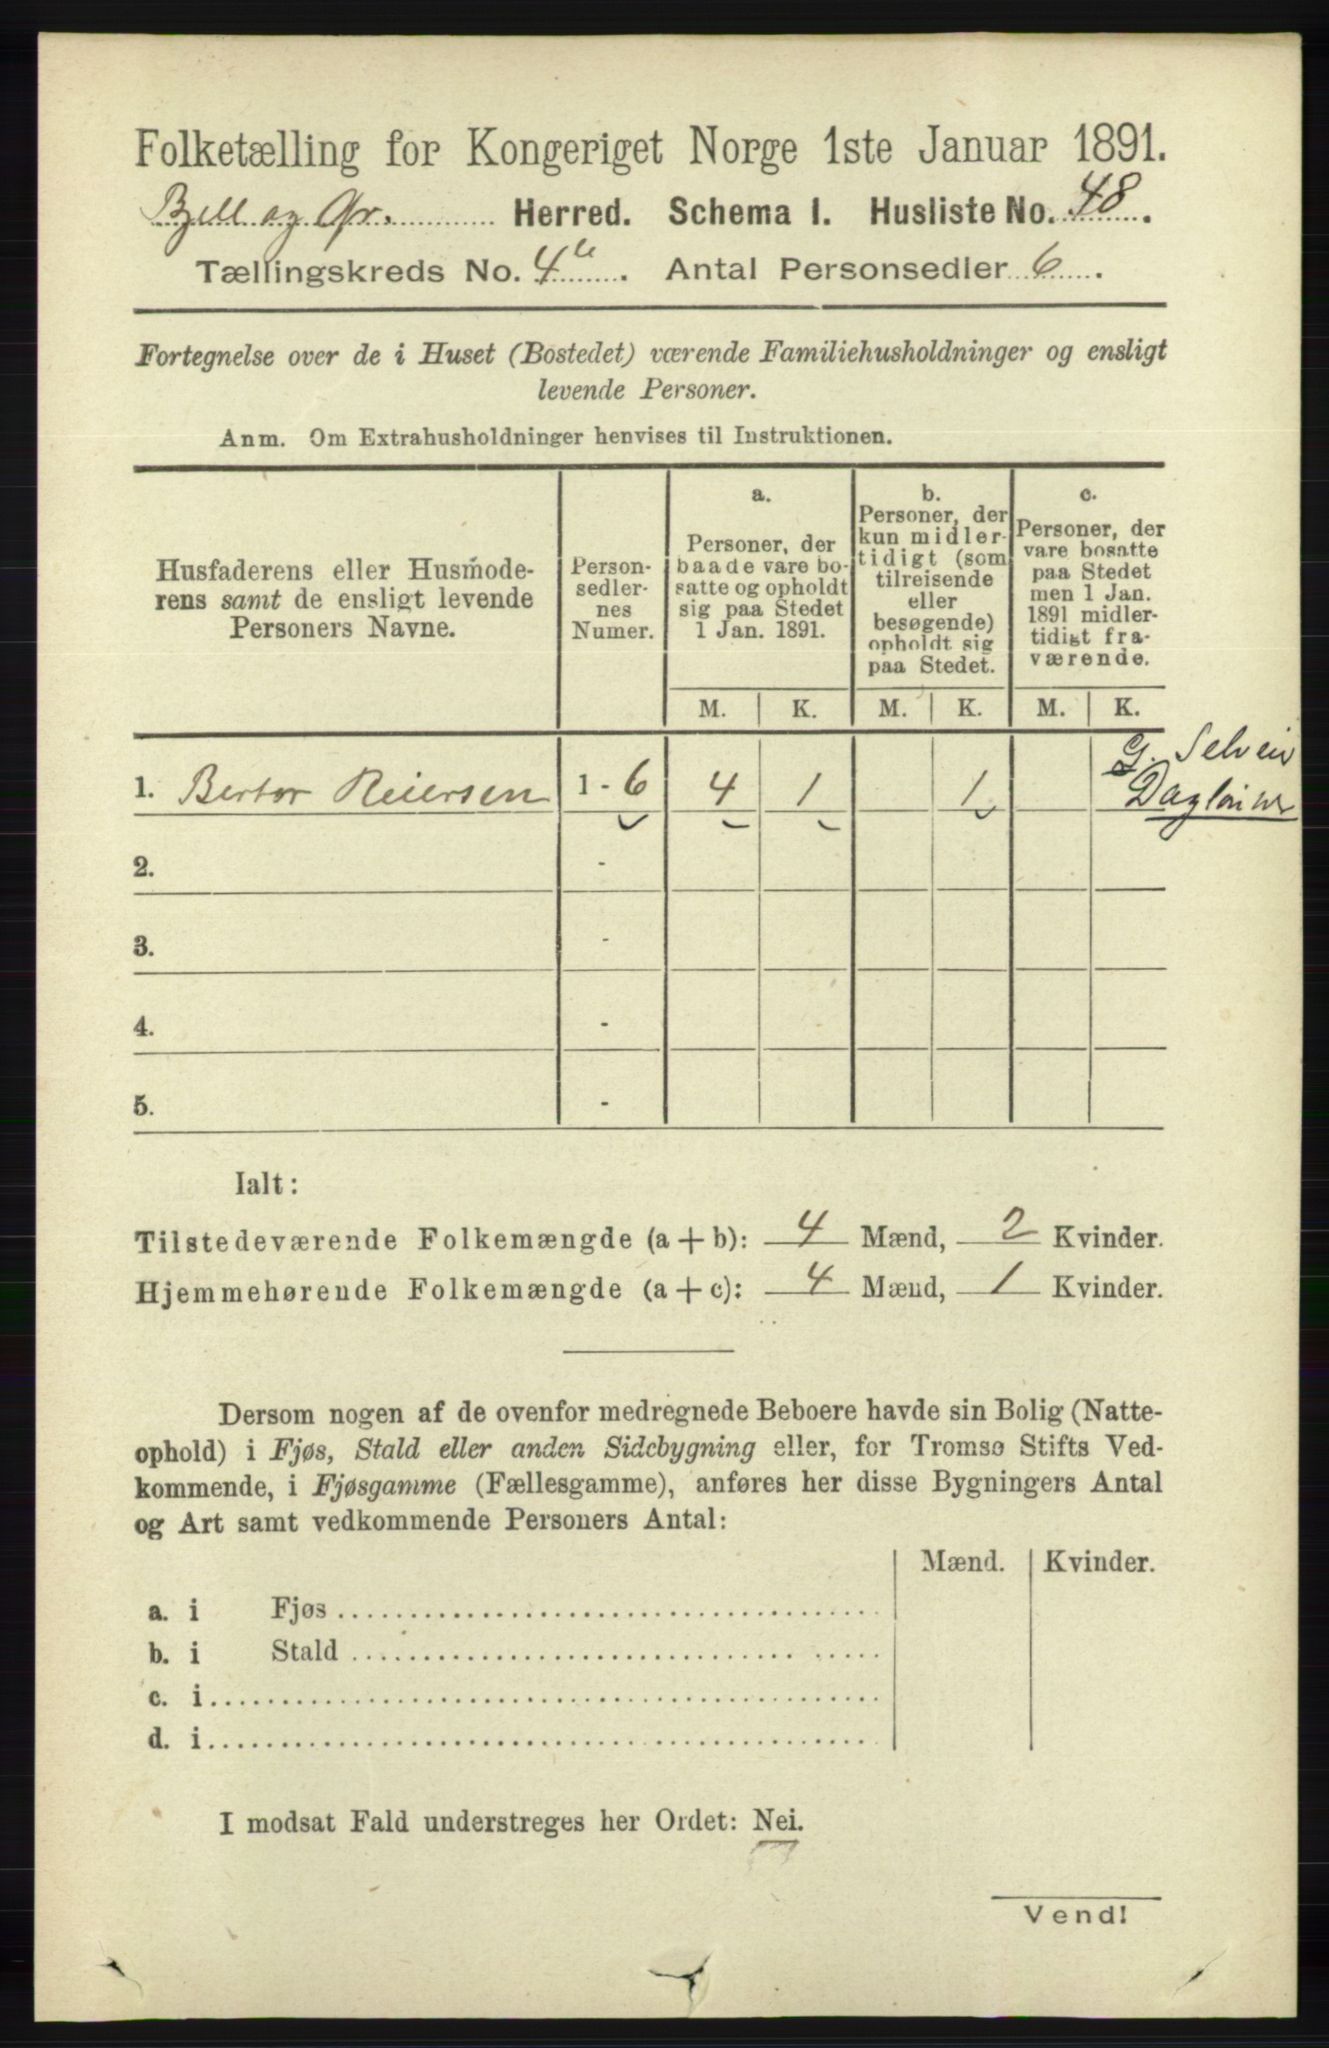 Folketælling for Kongeriget Norge 1ste Januar 1891.
Bjell og Gr. Herred. Schema I. Husliste No. 48.
Tællingskreds No. 4 . Antal Personsedler 6 .
Fortegnelse over de i Huset (Bostedet) værende Familiehusholdninger og ensligt
levende Personer.
Anm. Om Extrahusholdninger henvises til Instruktionen.
Husfaderens eller Husmode-
rens samt de ensligt levende
Personers Navne.
Person-
sedler-
nes
Numer.
a.
Personer, der
baade vare bo-
satte og opholdt
sig paa Stedet
1 Jan. 1891.
b.
Personer, der
kun midler-
tidigt (som
tilreisende
eller
besøgende)
opholdt sig
paa Stedet.
c.
Personer, der
vare bosatte
paa Stedet
men 1 Jan.
1891 midler-
tidigt fra-
værende.
M. K. M. K. M. K.
G. Selveier
1. Bertor Reiersen 1 - 6 4 1 1 Dagleiner
2. -
3. -
4. -
5. -
Ialt:
Tilstedeværende Folkemængde (a + b): 4 Mænd, 2 Kvinder.
Hjemmehørende Folkemængde (a + c): 4 Mænd, 1 Kvinder.
Dersom nogen af de ovenfor medregnede Beboere havde sin Bolig (Natte-
ophold) i Fjøs, Stald eller anden Sidebygning eller, for Tromsø Stifts Ved-
kommende, i Fjøsgamme (Fællesgamme), anføres her disse Bygningers Antal
og Art samt vedkommende Personers Antal:
Mænd. Kvinder.
a. i Fjøs
b. i Stald
c. i
d. i
I modsat Fald understreges her Ordet: Nei.
Vend!